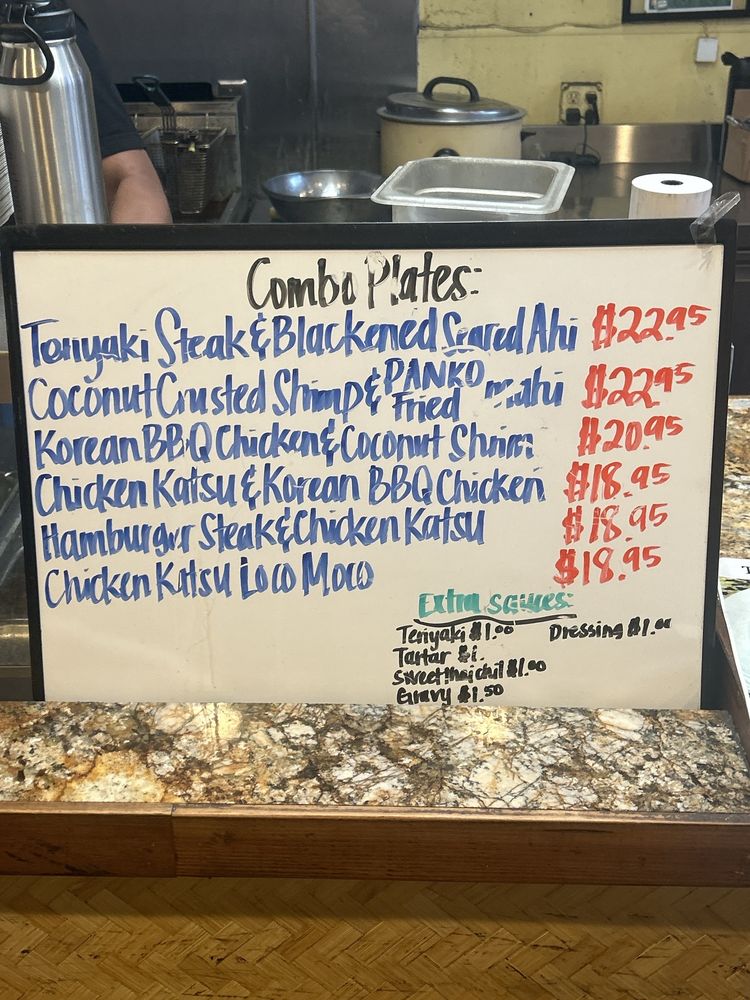 Combo Plates:
Teriyaki Steak & Blackened Seared Ahi $22.95
Coconut Crusted Shrimp & PANKO Fried mahi $22.95
Korean BBQ Chicken & Coconut Shrim $20.95
Chicken Katsu & Korean BBQ Chicken $18.95
Hamburger Steak & Chicken Katsu $18.95
Chicken Katsu Loco Moco $18.95
Extra sauces:
Teriyaki $1.00 Dressing $1.00
Tartar $1.
Sweet thai chili $1.00
Gravy $1.50